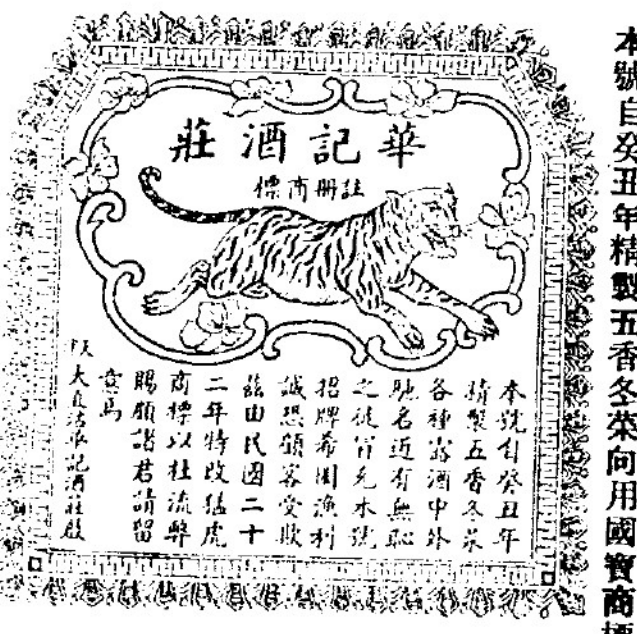 本號自癸丑年精製五香冬菜向用國寶商標
華記酒莊
註冊商標
本號自癸丑年
精製五香冬菜
各種露酒中外
馳名近有無恥
之徒冒充本號
招牌希圖漁利
誠恐顧客受欺
茲由民國二十
二年特改猛虎
商標以杜流弊
賜顧諸君請留
意焉
大直沽華記酒莊啟